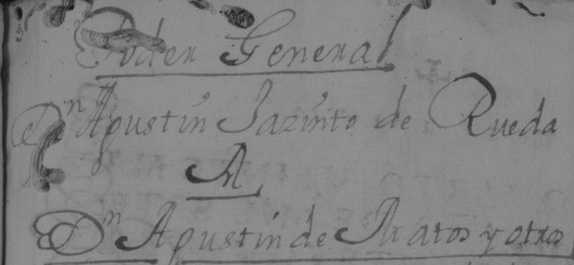 Poder General
Dn Agustin Jazinto de Rueda
A
Dn Agustin de Matos y otros